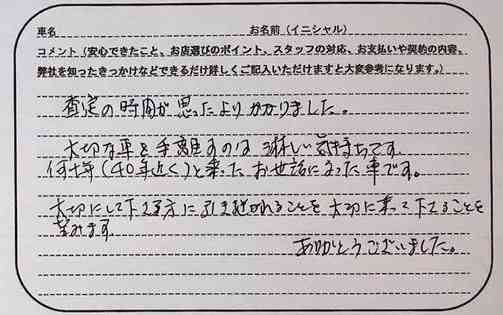 車名 お名前（イニシャル）
コメント（安心できたこと、お店選びのポイント、スタッフの対応、お支払いや契約の内容、
弊社を知ったきっかけなどできるだけ詳しくご記入いただけますと大変参考になります。）
査定の時間が思ったよりかかりました。
大切な車を手離すのは淋しい気持ちです
何十年（40年近く）と乗った お世話になった車です。
大切にして下さる方に引き継がれることを大切に乗って下さることを
望みます
ありがとうございました。